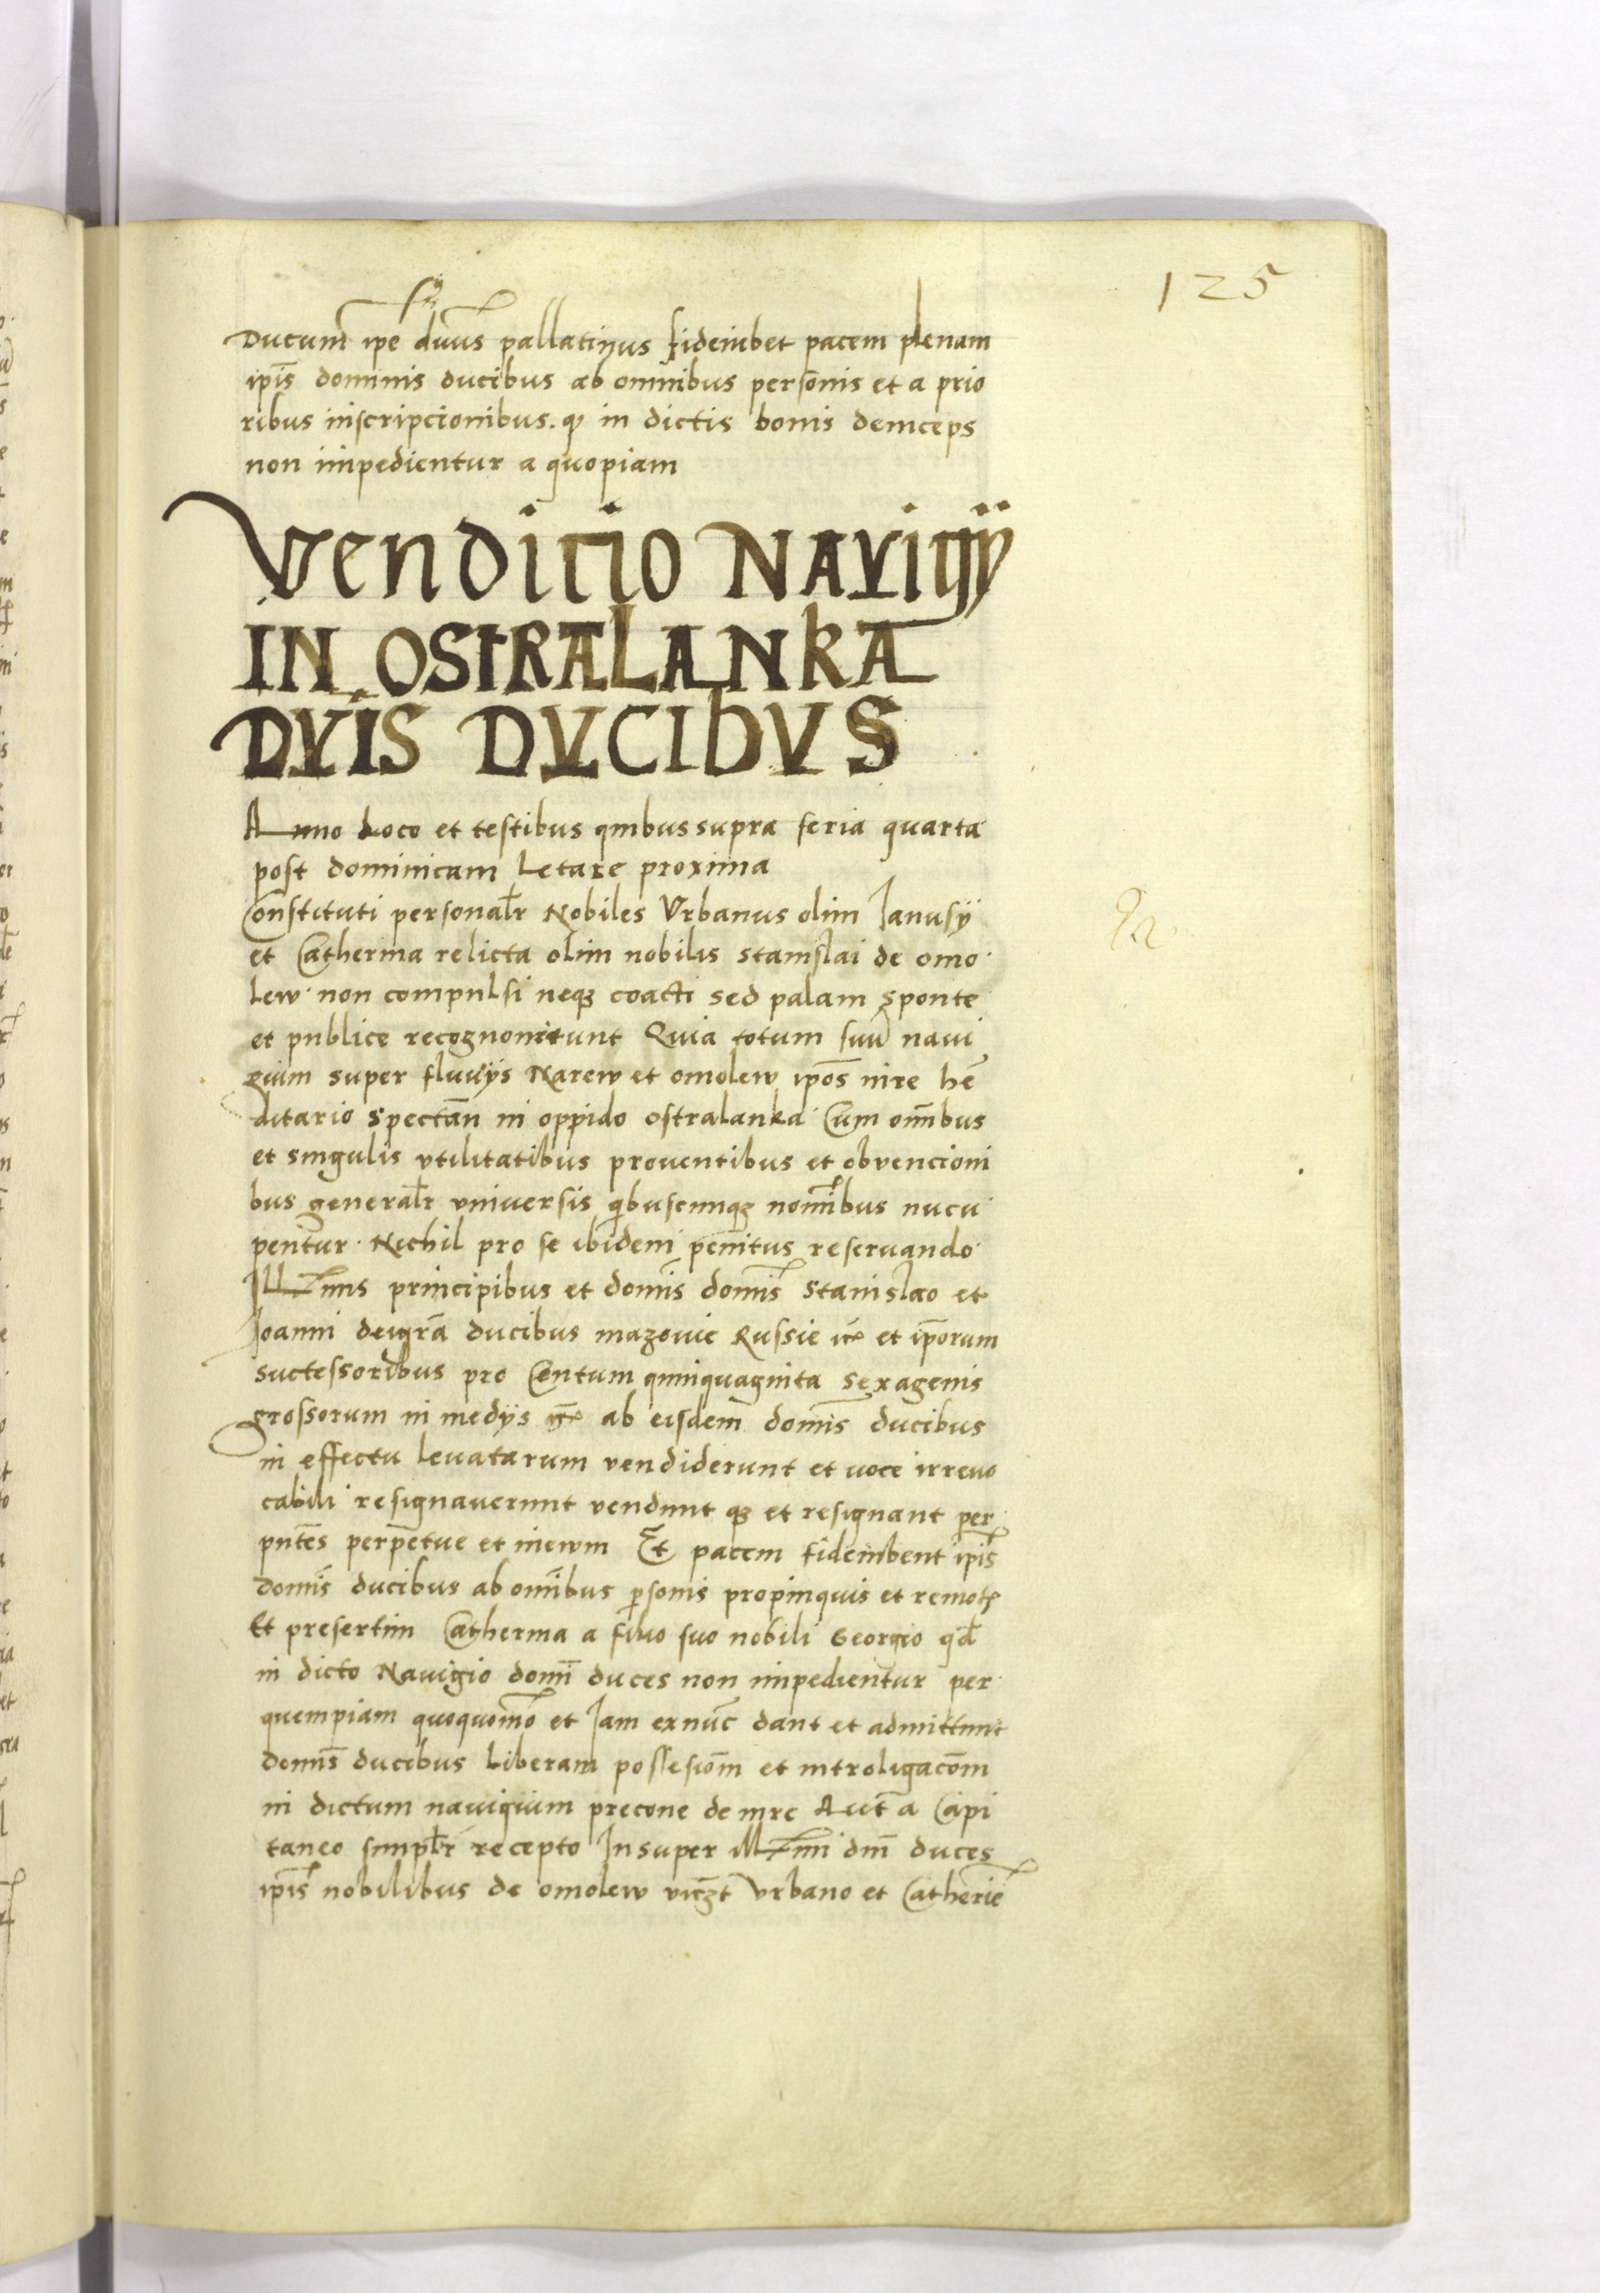 125
Ducum ipe dnus pallatinus fideiubet pacem plenam
ipis dominis ducibus ab omnibus personis et a prio
ribus inscripcionibus. q in dictis bonis deinceps
non impedientur a quopiam
Vendicio Navigij
in Ostralanka
Dnis Ducibus
Anno Loco et testibus quibus supra feria quarta
post dominicam Letare proxima
Constituti personalr Nobiles Urbanus olim Janusij
et Catherina relicta olim nobilis Stanislai de omo
lew non compulsi neqz coacti sed palam sponte
et publice recognouerunt Quia totum suu naui
gium super fluvijs Narew et omolew ipos iure he
ditario spectan in oppido Ostralanka Cum omibus
et singulis utilitatibus prouentibus et obvencioni
bus generalr vniversis qibuscunqz nomibus nucu
pentur Nichil pro se ibidem penitus reseruando
Illmis principibus et domis domis Stanislao et
Joanni dei gra ducibus mazouie Russie et iporum
suctessoribus pro Centum quinquaginta Sexagenis
grossorum in medijs ab eisdem domis ducibus
in effectu leuatarum vendiderunt et voce irreuo
cabili resignauerunt vendunt qz et resignant per
pntes perpetue et in ewm Et pacem fideiubent ipis
domis ducibus ab omibus psonis propinquis et remot
Et presertim Catherina a filio suo nobili Georgio qd
in dicto Nauigio domi duces non impedientur per
quempiam quoquomo et Jam exnuc dant et admittunt
domis ducibus Liberam possesiom et introligacom
in dictum nauigium precone de iure Aut a Capi
taneo simplr recepto Insuper Illmi dni duces
ipis nobilibus de omolew vidzt Urbano et Catherie